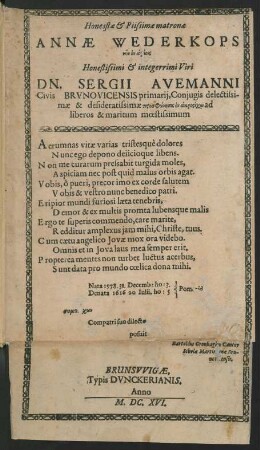 Honestæ & Piissimæ matronæ
ANNÆ WEDERKOPS
Honestissimi & integerrimi Viri
DN. SERGII AVEMANNI
Civis BRVNOVICENSIS primarij, Conjugis delectissi-
mæ & desideratissimæ ad
liberos & maritum mœstissimum
Aerumnas vitæ varias tristesqué dolores
Nunc ego depono deiicioque libens.
Non me curarum presisabit turgida moles,
Aspiciam nec post quid malus orbis agat.
Vobis, ô pueri, precor imo ex corde salutem
Vobis & vestro nunc benedico patri.
Eripior mundi furiosi læta tenebris,
Demor & ex multis promta lubensque malis
Ergo te superis commendo, care marite,
Redditur amplexus jam mihi, Christe, tuus.
Cum cœtu angelico Jovæ mox ora videbo.
Omnis et in Jova laus mea semper erit,
Propterea mentes non turbet luctus acerbus,
Sunt data pro mundo cœlica dona mihi.
Nata 1558. 31. Decemb: ho: 7.
Denata 1616 20 Iulii, ho: 5
Pom.
Compatri suo dilectæ
posuit
BRUNSVVIGÆ,
Typis DVNCKERIANIS,
Anno
M. DC. XVI.